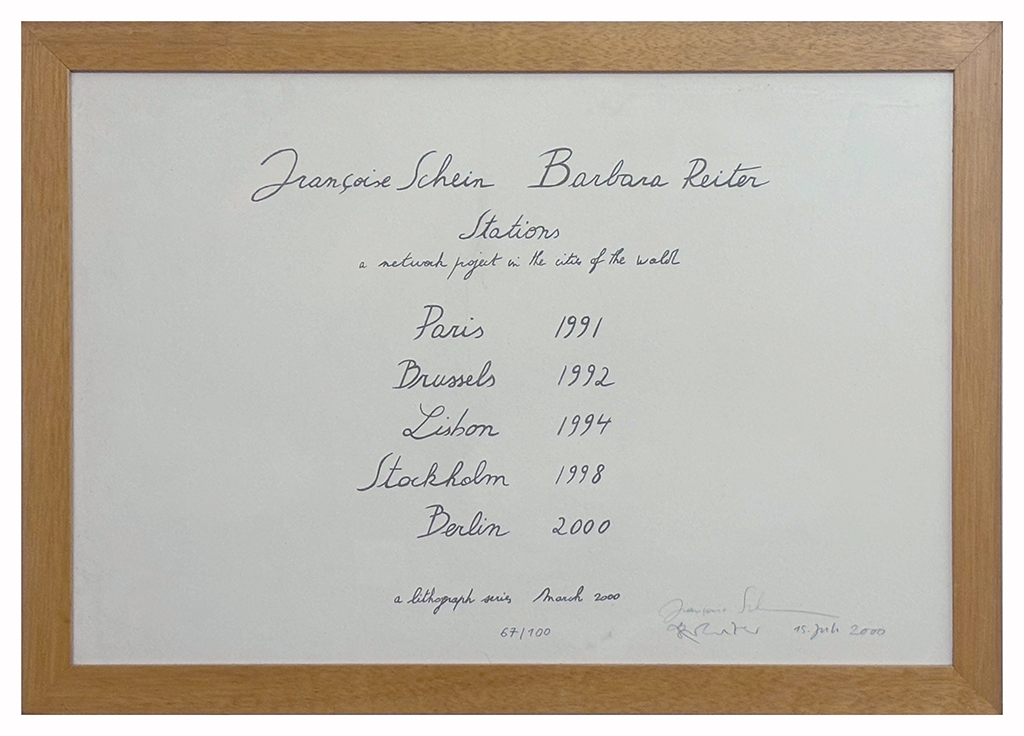 Françoise Schein Barbara Reiter
Stations
a network project in the cities of the world
Paris 1991
Brussels 1992
Lisbon 1994
Stockholm 1998
Berlin 2000
a lithograph series March 2000
67/100
Françoise Schein
Reiter 15. Juli 2000